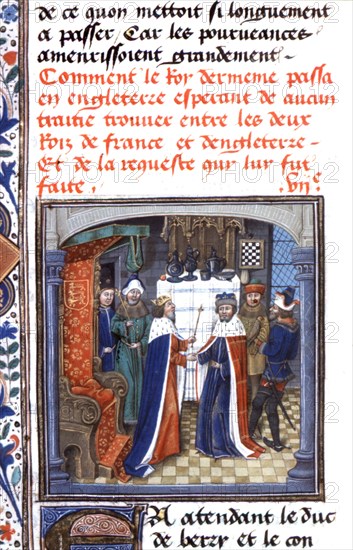 de ce quon mettoit si longuement
a passer, Car les pourueances
amenrissoient grandement.
Comment le Roy dermenie passa
en engleterre esperant de aucun
traitie trouuer entre les deux
Roiz de france et dengleterre -
Et de la requeste qui lui fut
faite, .vii.e
En atendant le duc
de berry et le con
PHOTO12